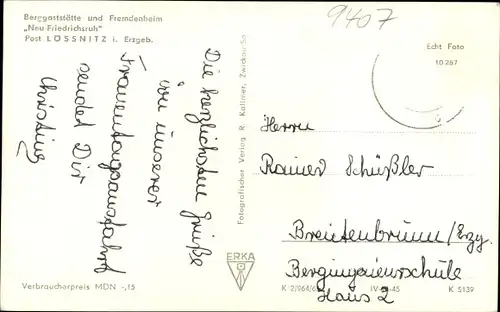 Berggaststätte und Fremdenheim
„Neu-Friedrichsruh"
Post LÖSSNITZ i. Erzgeb.
9407
Echt Foto
10 267
Die herzlichsten Grüße
von unserer
Frauentagsausfahrt
sendet Dir
Christine
Fotografischer Verlag R. Kallmer, Zwickau/Sa
Herrn
Rainer Schüßler
Breitenbrunn/Erzg.
Bergingenieurschule
Haus 2
ERKA
Verbraucherpreis MDN -,15
IV-
45
K 5139